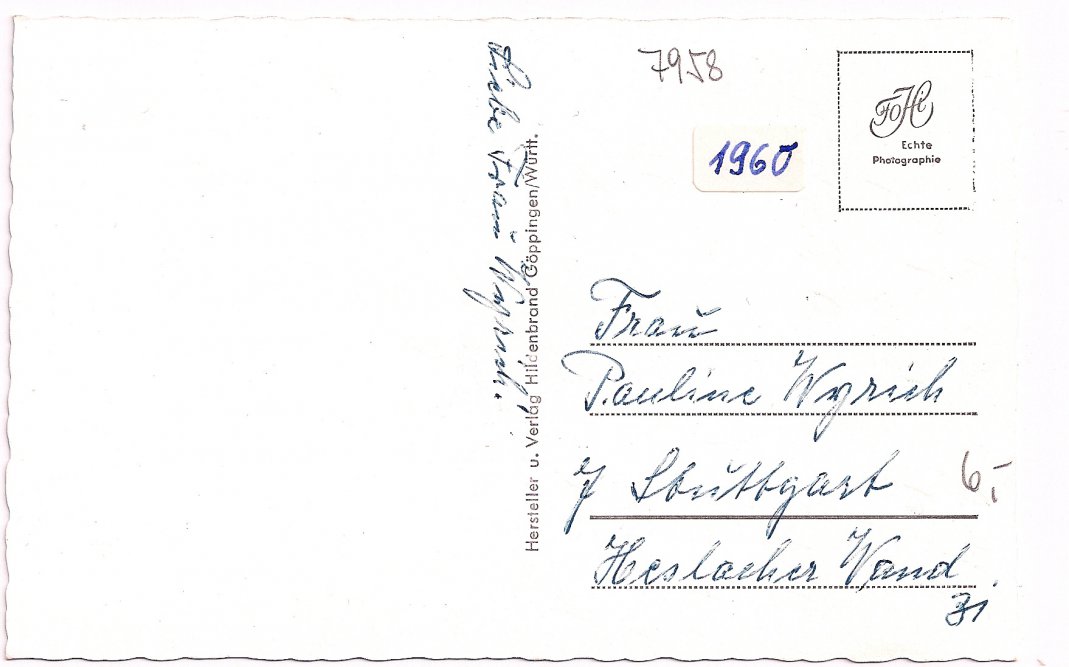 Liebe Frau Wyrich!
Hersteller u. Verlag Hildenbrand Göppingen/Württ.
7958
1960
FoHi
Echte
Photographie
Frau
Pauline Wyrich
7 Stuttgart
6,-
Heslacher Wand
31